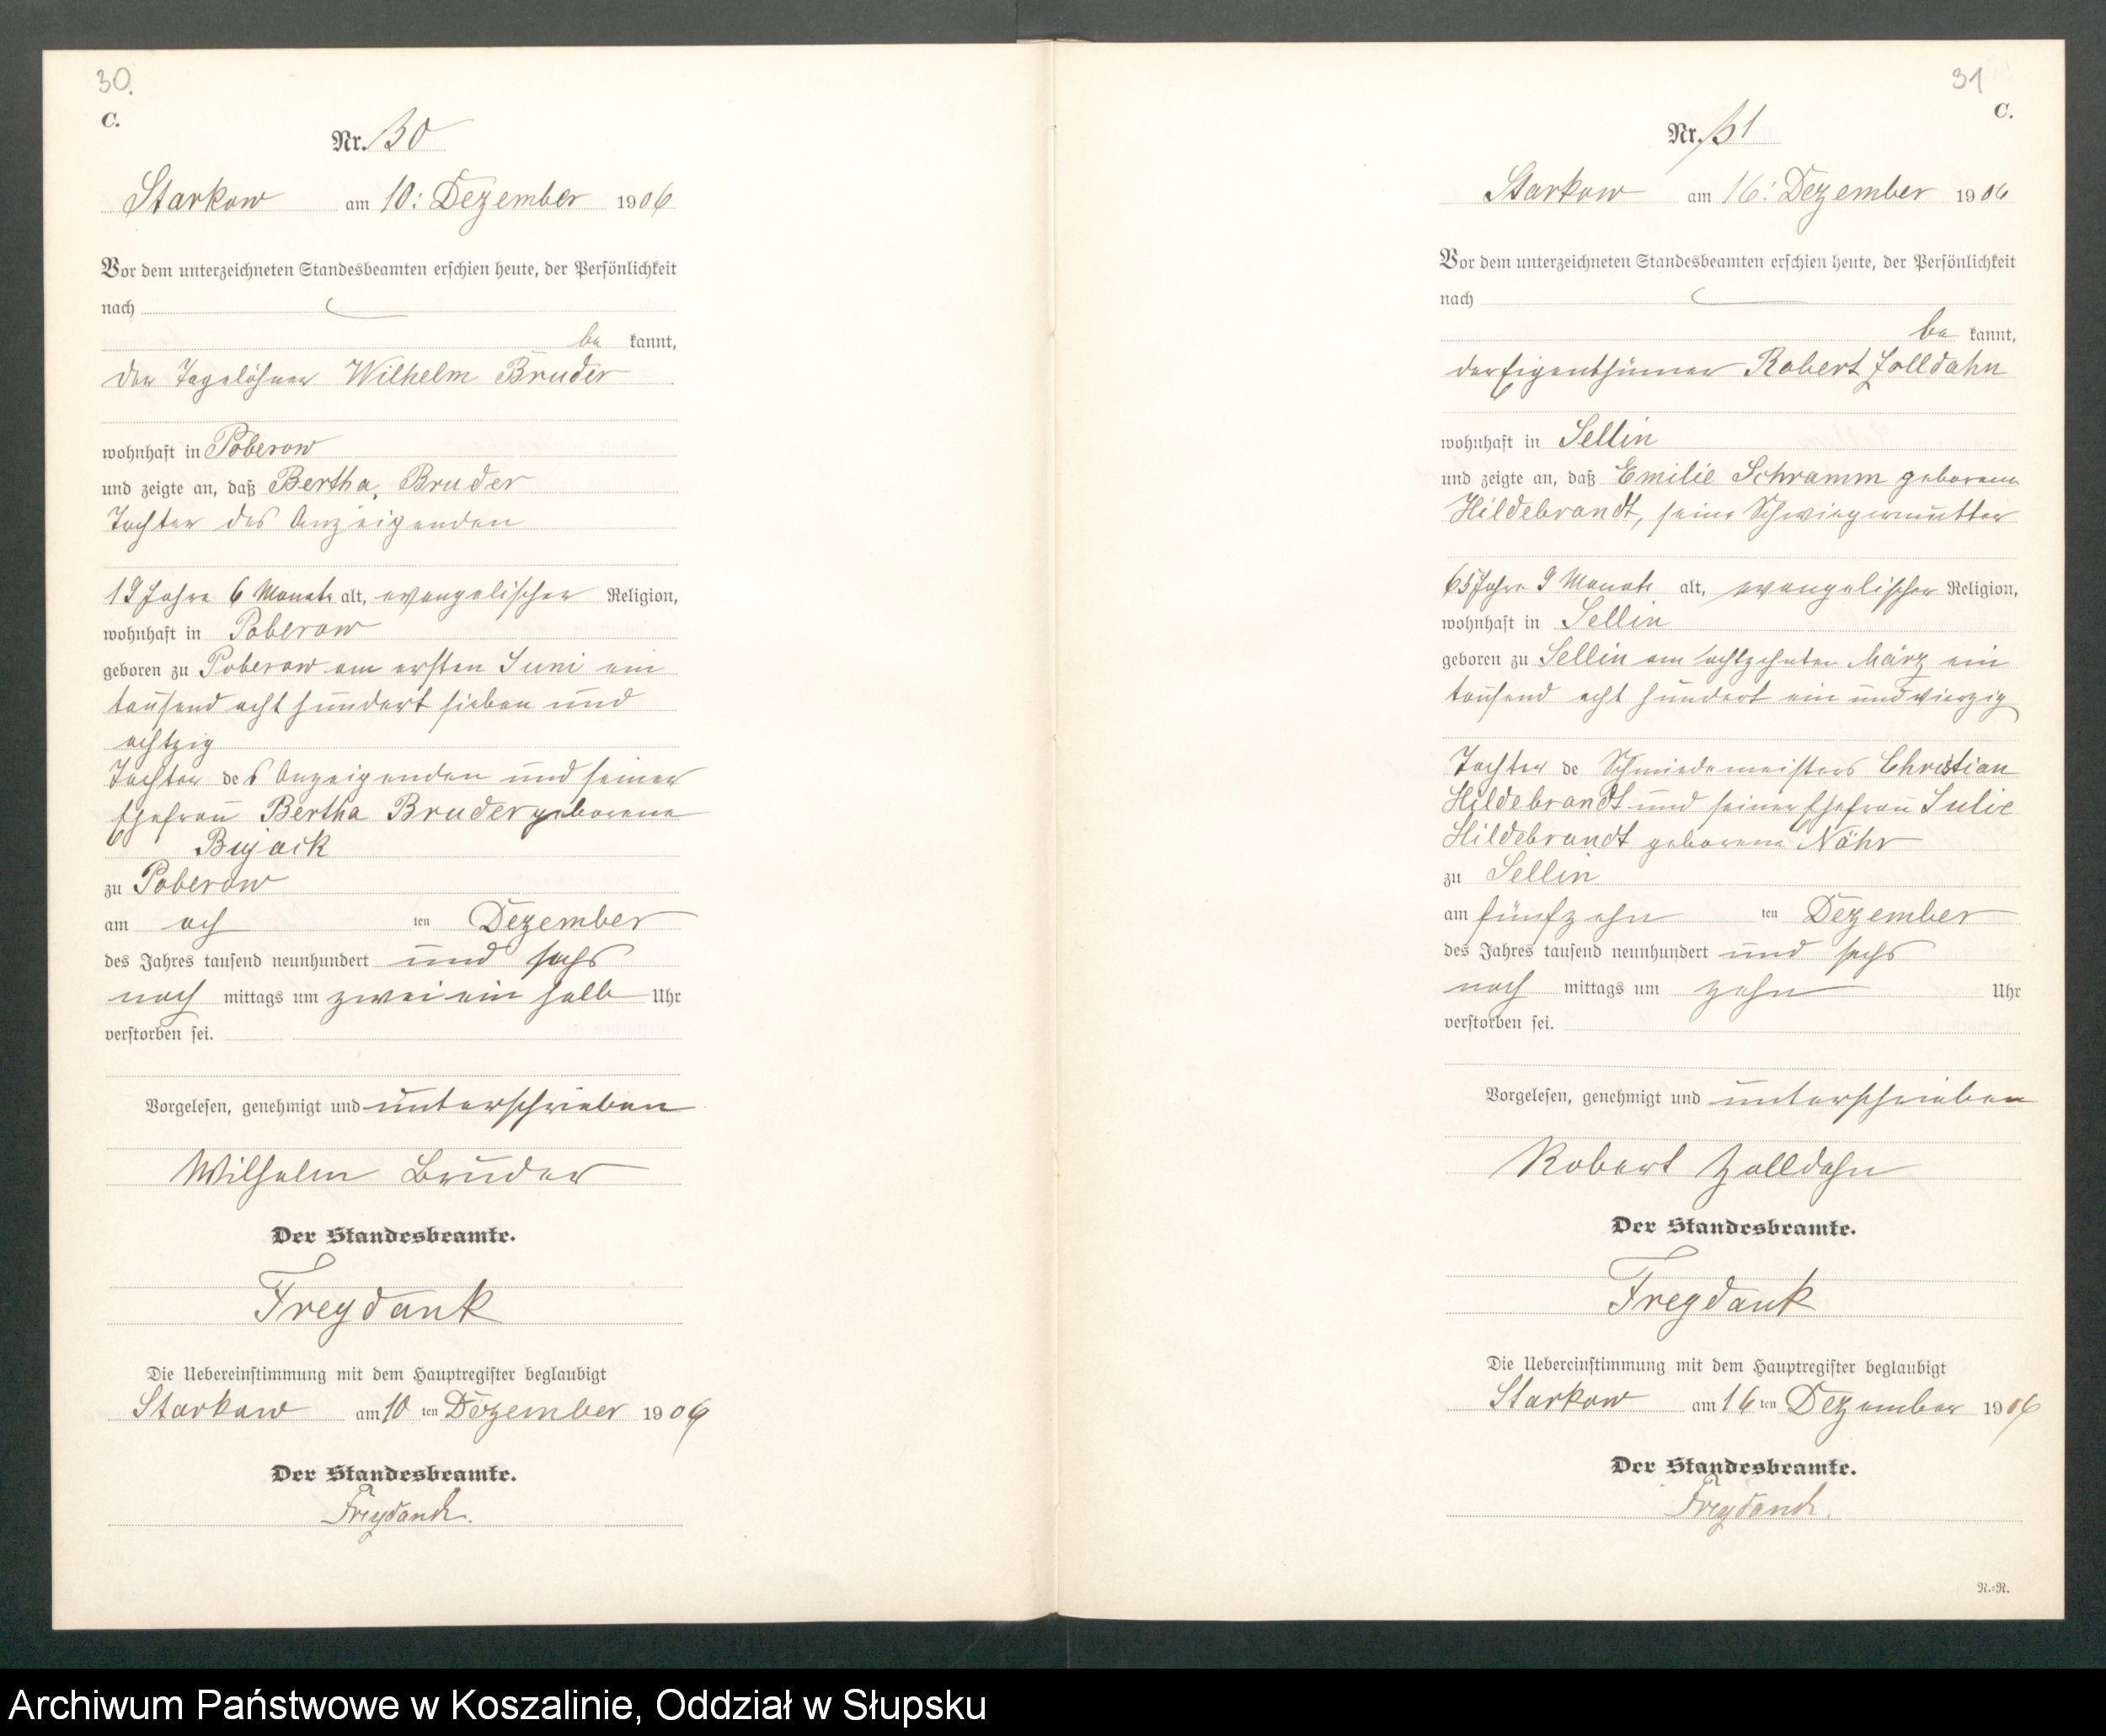 30.
C.
Nr. 30
Starkow am 10: Dezember 1906
Vor dem unterzeichneten Standesbeamten erschien heute, der Persönlichkeit
nach
be kannt,
der Tagelöhner Wilhelm Bruder
wohnhaft in Poberow
und zeigte an, daß Bertha, Bruder
Tochter des Anzeigenden
19 Jahre 6 Monate alt, evangelischer Religion,
wohnhaft in Poberow
geboren zu Poberow am ersten Juni ein
tausend acht hundert sieben und
achtzig
Tochter des Anzeigenden und seiner
Ehefrau Bertha Bruder geborene
Bujack
zu Poberow
am ach ten Dezember
des Jahres tausend neunhundert und sechs
nach mittags um zwei ein halb Uhr
verstorben sei.
Vorgelesen, genehmigt und unterschrieben
Wilhelm Bruder
Der Standesbeamte.
Freydank
Die Uebereinstimmung mit dem Hauptregister beglaubigt
Starkow am 10 ten Dezember 1906
Der Standesbeamte.
Freydank.
31
C.
Nr. 31
Starkow am 16: Dezember 1906
Vor dem unterzeichneten Standesbeamten erschien heute, der Persönlichkeit
nach
be kannt,
der Eigenthümer Robert Zolldahn
wohnhaft in Sellin
und zeigte an, daß Emilie Schramm geborene
Hildebrandt, seine Schwiegermutter
65 Jahre 9 Monate alt, evangelischer Religion,
wohnhaft in Sellin
geboren zu Sellin am achtzehnten März ein
tausend acht hundert ein und vierzig
Tochter de Schmiedemeisters Christian
Hildebrandt und seiner Ehefrau Julie
Hildebrandt geborene Nähr
zu Sellin
am fünfzehn ten Dezember
des Jahres tausend neunhundert und sechs
nach mittags um zehn Uhr
verstorben sei.
Vorgelesen, genehmigt und unterschrieben
Robert Zolldahn
Der Standesbeamte.
Freydank
Die Uebereinstimmung mit dem Hauptregister beglaubigt
Starkow am 16 ten Dezember 1906
Der Standesbeamte.
Freydank.
N.=N.
Archiwum Państwowe w Koszalinie, Oddział w Słupsku